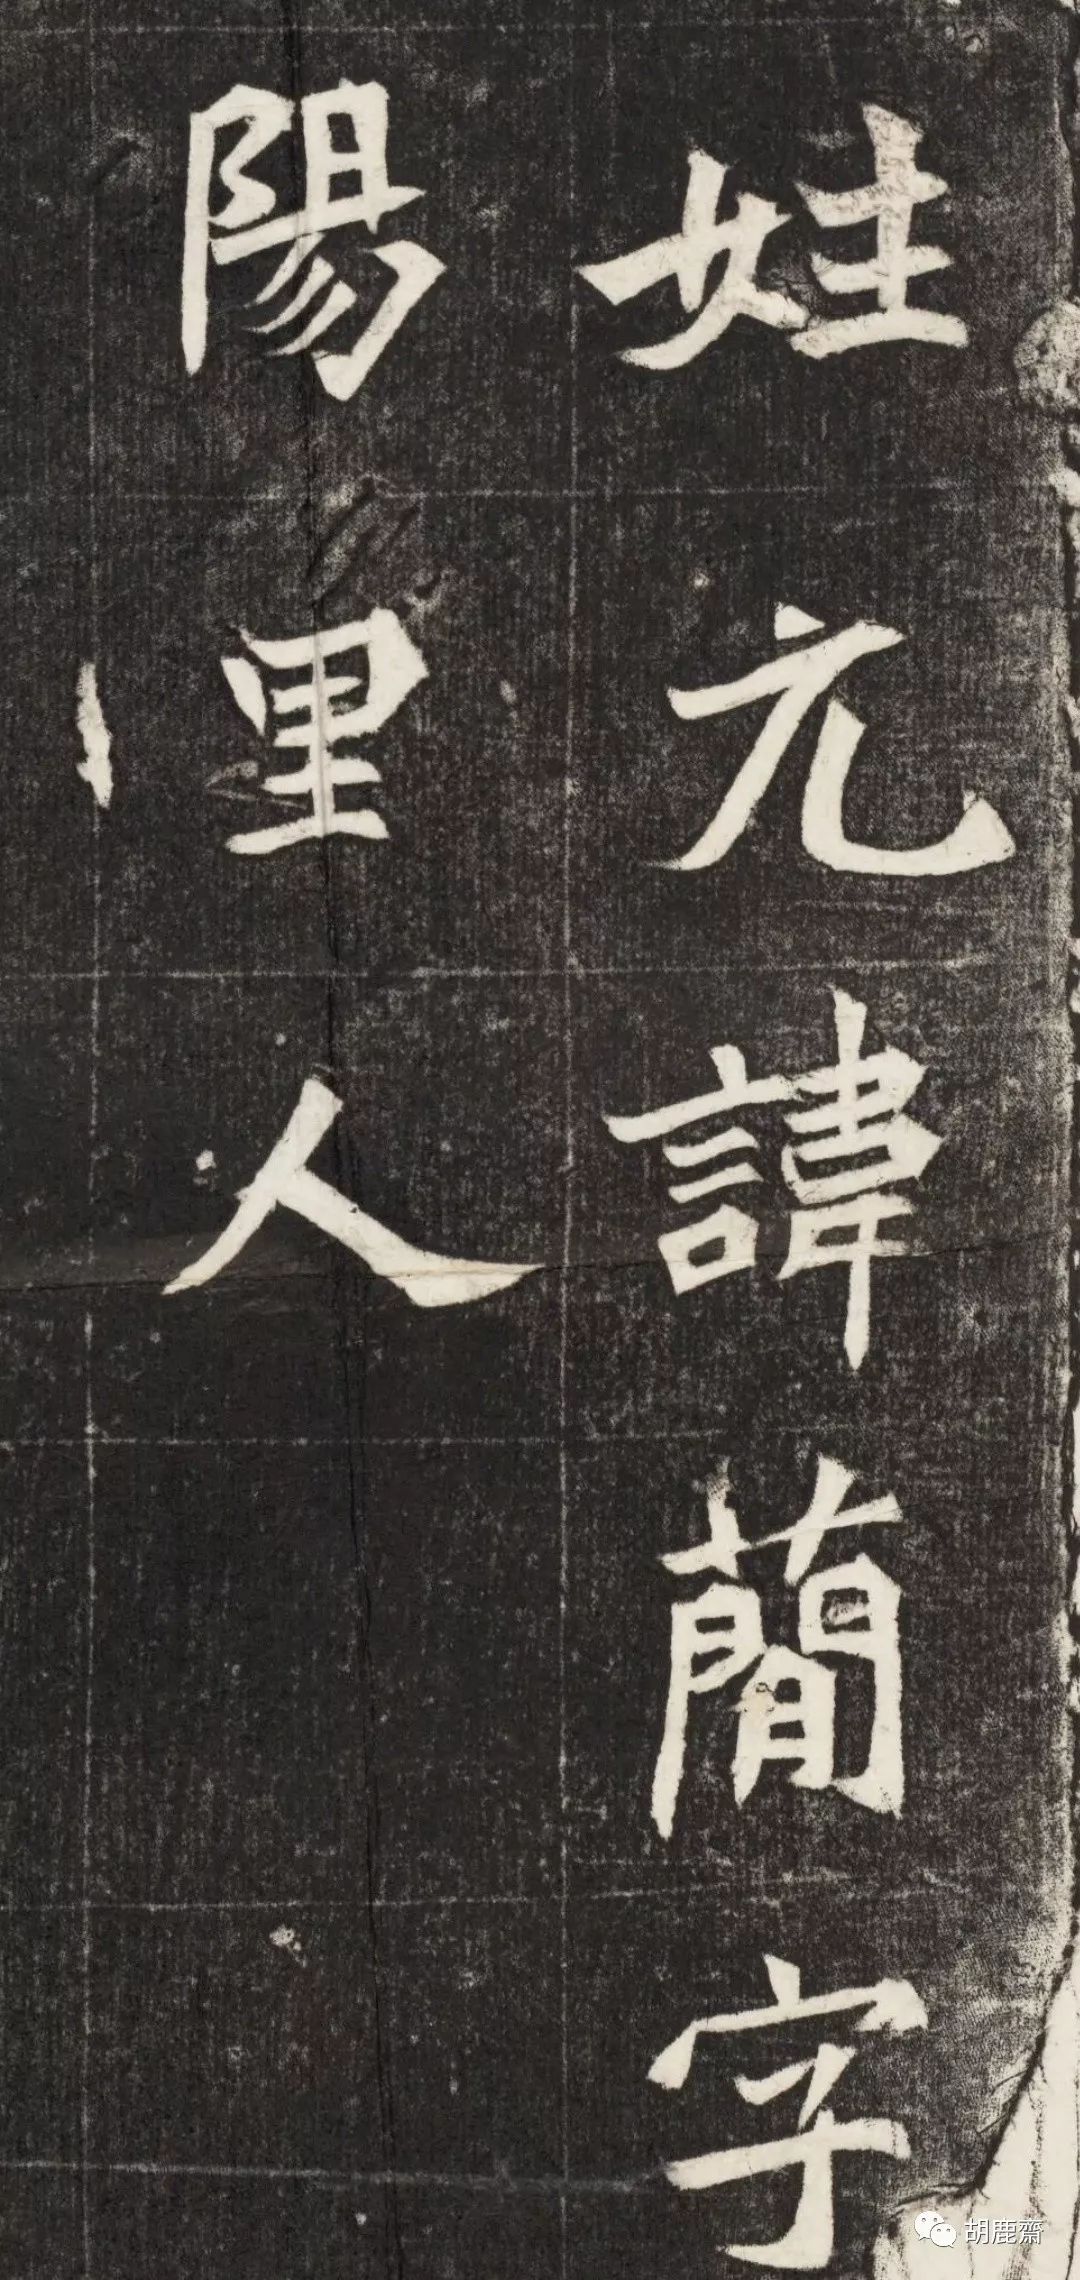 姓元諱蕳字
陽里人
胡鹿齋